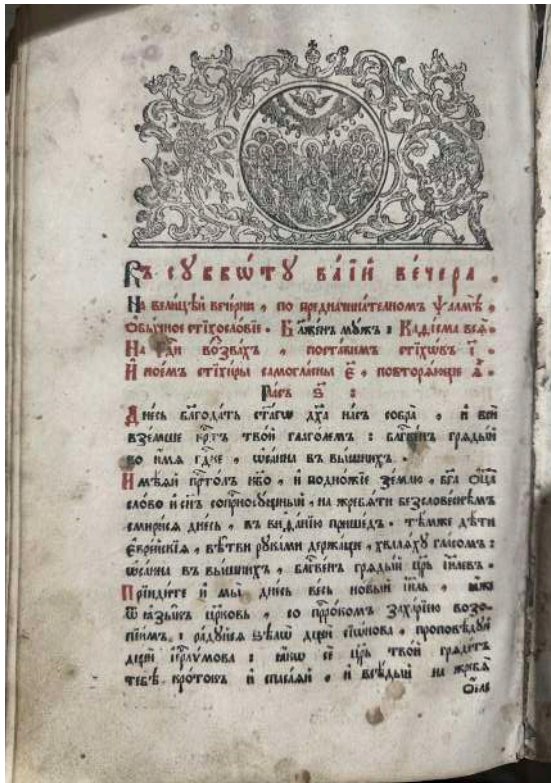 Въ сꙋббѡ́тꙋ ва́їй ве́чера .
На вели́цѣй вече́рни , по предначина́тельномъ ѱалмѣ̀ ,
Ѻ҆бы́чное стїхосло́вїе . Бл҃же́нъ мꙋ́жъ : Каѳі́сма всѧ̀ .
На гдⷭ҇и воззва́хъ , поста́вимъ стїхѡ́въ і҃ .
И҆ пое́мъ стїхи̑ры самогла́сны є҃ , повторѧ́юще а҃ .
Гла́съ ѕ҃ :
Дне́сь бл҃года́ть ст҃а́гѡ дх҃а на́съ собра̀ , и҆ всѝ
взе́мше крⷭ҇тъ тво́й глаго́лемъ : бл҃гве́нъ грѧды́й
во и҆́мѧ гдⷭ҇не , ѡ҆са́нна въ вы́шнихъ .
И҆мѣ́ѧй прⷭ҇то́лъ нб҃о , и҆ подно́жїе зе́млю , бг҃а ѻ҆ц҃а̀
сло́во и҆ сн҃ъ соприсносꙋ́щный , на жребѧ́ти безслове́снѣмъ
смири́сѧ дне́сь , въ виѳа́нїю прише́дъ . тѣ́мже дѣ́ти
є҆вре́йскїѧ , вѣ̑тви рꙋка́ми держа́ще , хвалѧ́хꙋ гла́сомъ :
ѡ҆са́нна въ вы́шнихъ , бл҃гве́нъ грѧды́й цр҃ь і҆и҃левъ .
Прїиди́те и҆ мы̀ дне́сь ве́сь но́вый і҆и҃ль , ꙗ҆́же
ѿ ꙗ҆зы̑къ це́рковь , со прⷪ҇ро́комъ заха́рїею возо-
пїи́мъ : ра́дꙋйсѧ ѕѣлѡ̀ дщѝ сїѡ́нова , проповѣ́дꙋй
дщѝ і҆ерⷭ҇ли́мова : ꙗ҆́кѡ сѐ цр҃ь тво́й грѧде́тъ
тебѣ̀ кро́токъ и҆ спаса́ѧй , и҆ всѣ́дый на жребѧ̀
Ѻ҆́сле